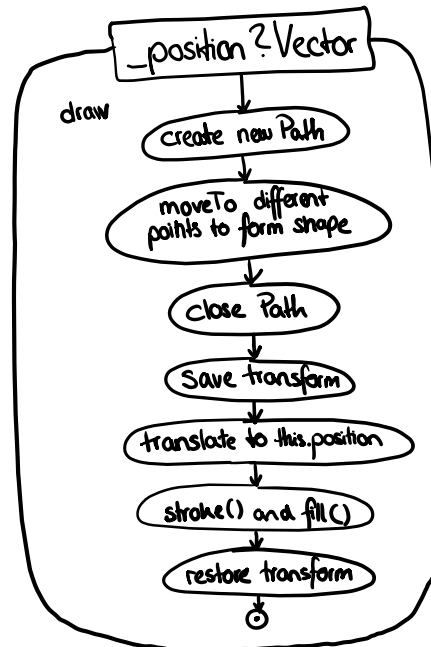 _position?Vector
draw
create new Path
moveTo different
points to form shape
close Path
save transform
translate to this.position
stroke() and fill()
restore transform